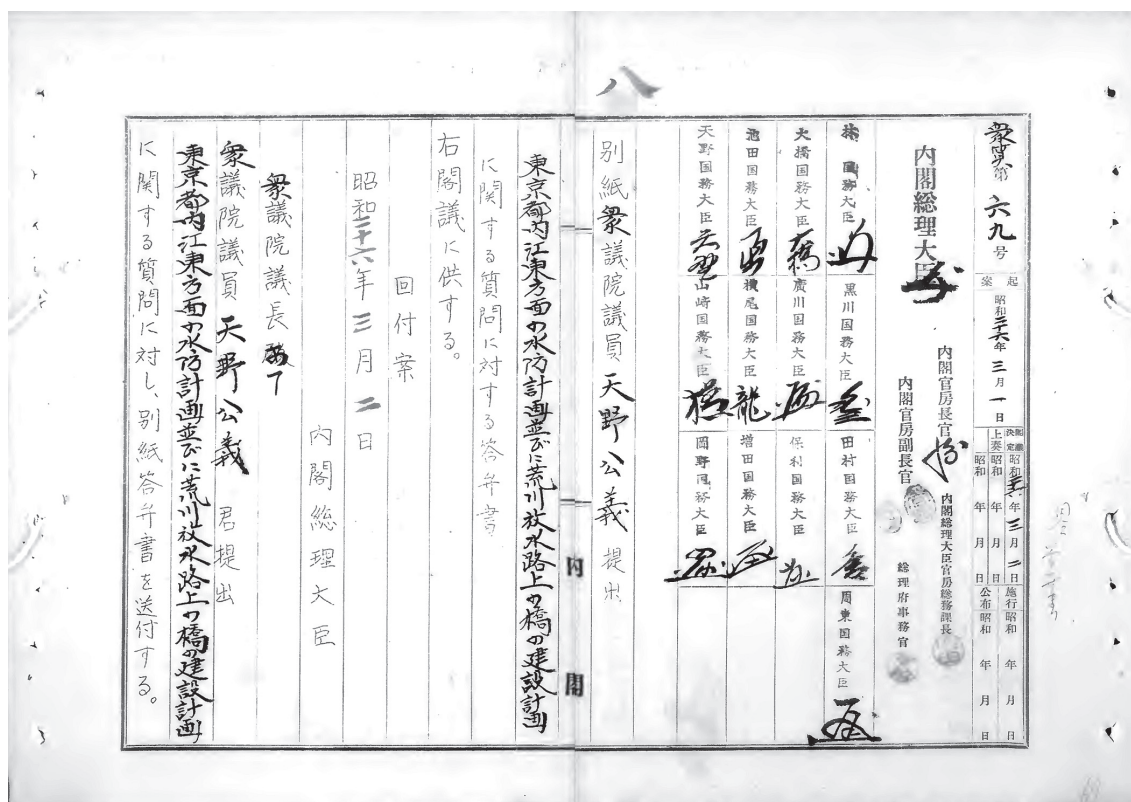 八
衆質第六九号
起案 昭和二十六年三月一日
閣議決定 昭和二六年三月二日
上奏 昭和 年 月 日
施行 昭和 年 月 日
公布 昭和 年 月 日
内閣総理大臣
内閣官房長官
内閣官房副長官
内閣総理大臣官房総務課長
総理府事務官
林国務大臣
黒川国務大臣
田村国務大臣
周東国務大臣
大橋国務大臣
廣川国務大臣
保利国務大臣
池田国務大臣
横尾国務大臣
増田国務大臣
天野国務大臣
山崎国務大臣
岡野国務大臣
別紙衆議院議員天野公義提出
東京都内江東方面の水防計画並びに荒川放水路上の橋の建設計画
に関する質問に対する答弁書
右閣議に供する。
回付案
昭和二十六年三月二日
内閣総理大臣
衆議院議長あて
衆議院議員天野公義君提出
東京都内江東方面の水防計画並びに荒川放水路上の橋の建設計画
に関する質問に対し、別紙答弁書を送付する。
内閣